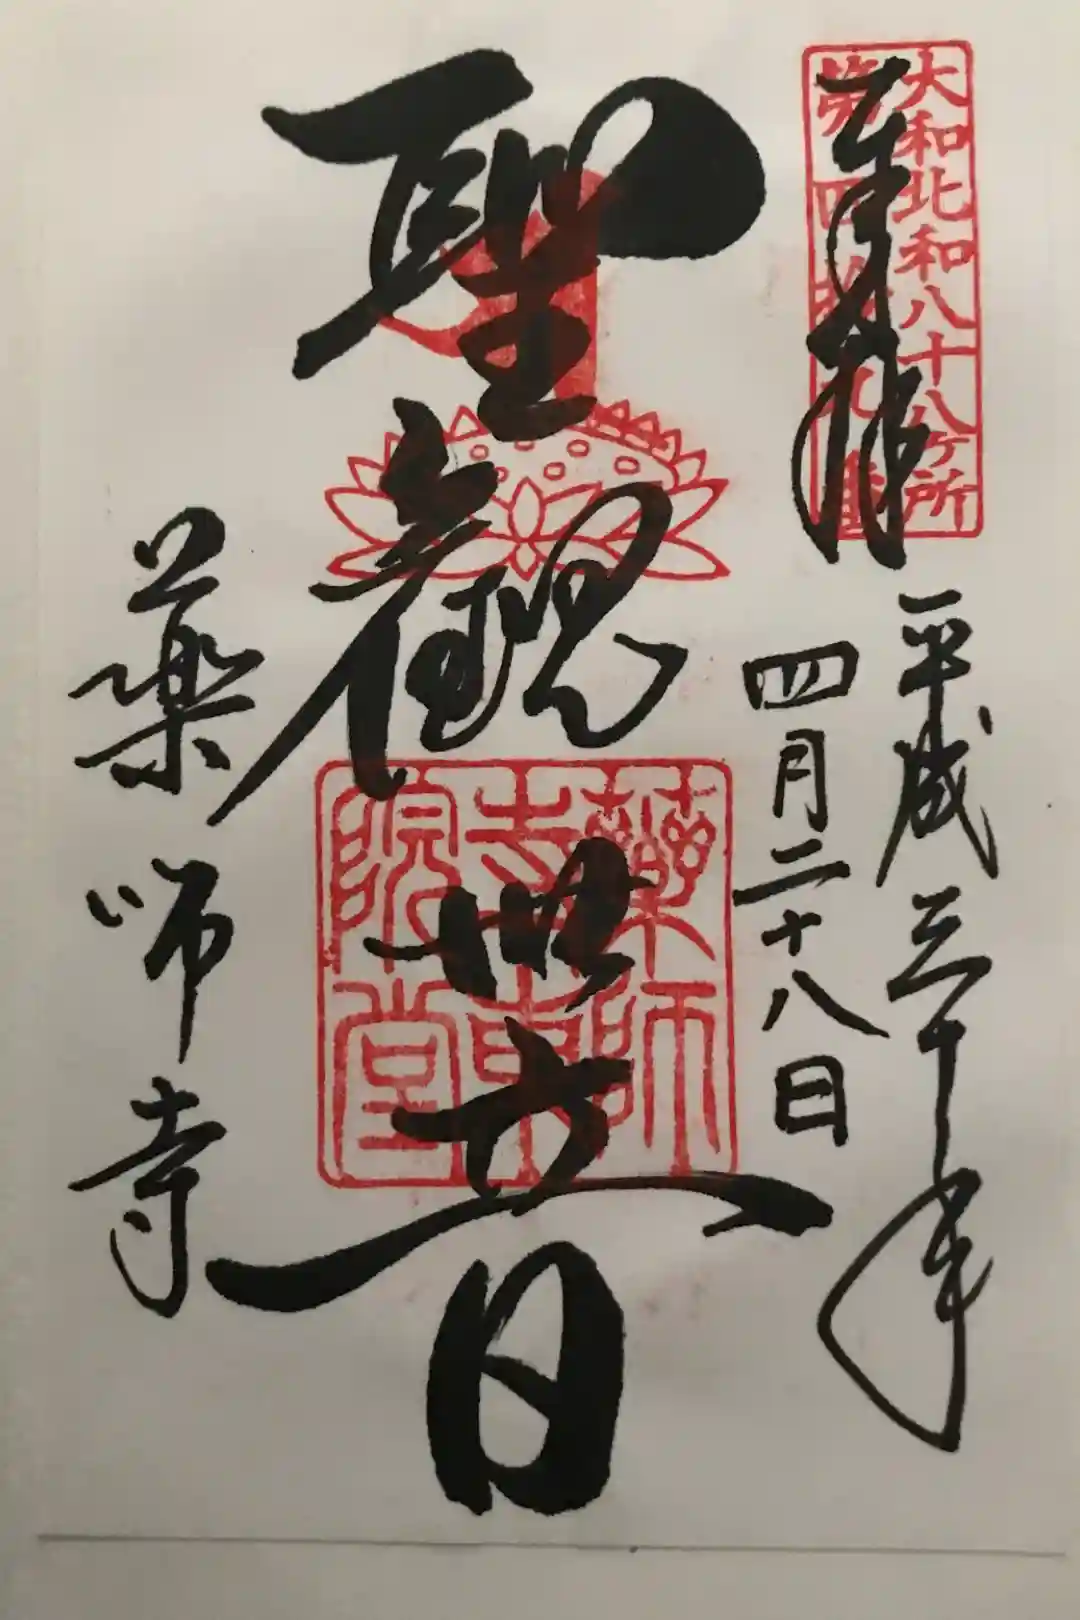 大和北和八十八ヶ所
第四拾 番
奉拝
平成三十年
四月二十八日
聖観世音
藥師
寺東
院堂
薬師寺